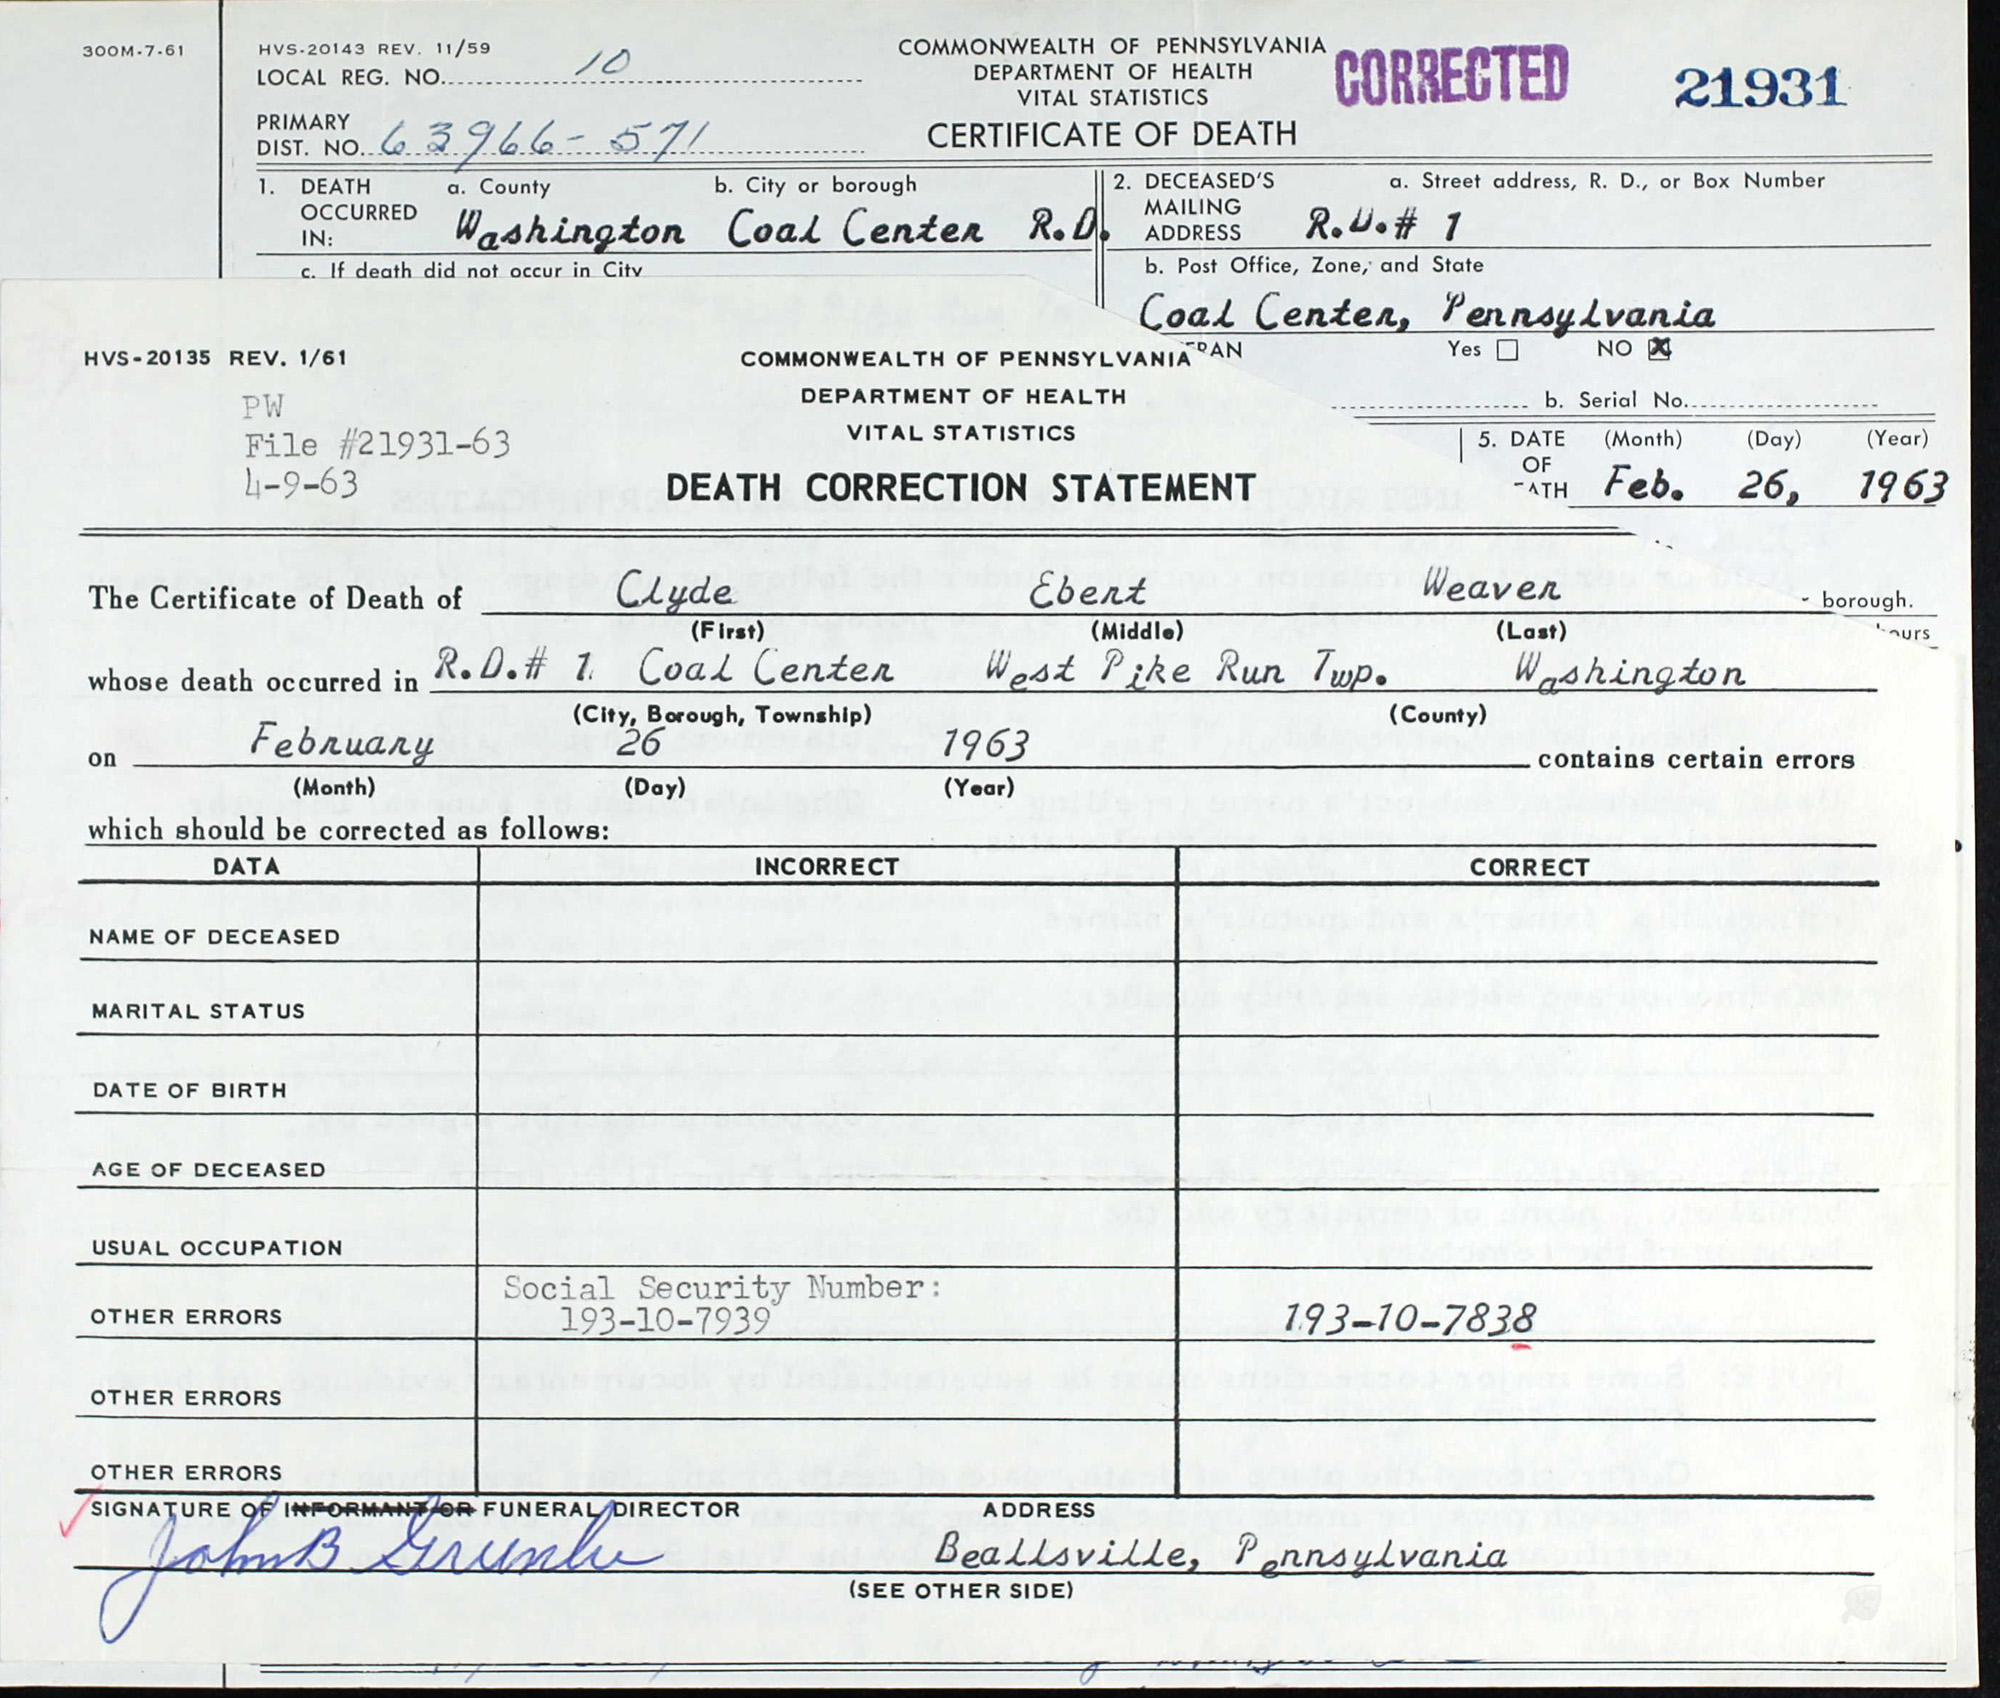 300M-7-61
HVS-20143 REV. 11/59
LOCAL REG. NO. 10
PRIMARY
DIST. NO. 63966-571
COMMONWEALTH OF PENNSYLVANIA
DEPARTMENT OF HEALTH
VITAL STATISTICS
CERTIFICATE OF DEATH
CORRECTED
21931
1. DEATH OCCURRED IN:
a. County
b. City or borough
Washington Coal Center R.D.
c. If death did not occur in City
2. DECEASED'S MAILING ADDRESS
a. Street address, R. D., or Box Number
R.D.# 1
b. Post Office, Zone, and State
Coal Center, Pennsylvania
Yes ☐ NO ☒
b. Serial No.
5. DATE (Month) (Day) (Year)
OF
Feb. 26, 1963
borough.
HVS-20135 REV. 1/61
PW
File #21931-63
4-9-63
COMMONWEALTH OF PENNSYLVANIA
DEPARTMENT OF HEALTH
VITAL STATISTICS
DEATH CORRECTION STATEMENT
The Certificate of Death of Clyde Ebert Weaver
(First) (Middle) (Last)
whose death occurred in R.D.# 1. Coal Center West Pike Run Twp. Washington
(City, Borough, Township) (County)
on February 26 1963 contains certain errors
(Month) (Day) (Year)
which should be corrected as follows:
DATA INCORRECT CORRECT
NAME OF DECEASED
MARITAL STATUS
DATE OF BIRTH
AGE OF DECEASED
USUAL OCCUPATION
Social Security Number:
OTHER ERRORS 193-10-7939 193-10-7838
OTHER ERRORS
OTHER ERRORS
SIGNATURE OF INFORMANT OR FUNERAL DIRECTOR ADDRESS
John B Beallsville, Pennsylvania
(SEE OTHER SIDE)